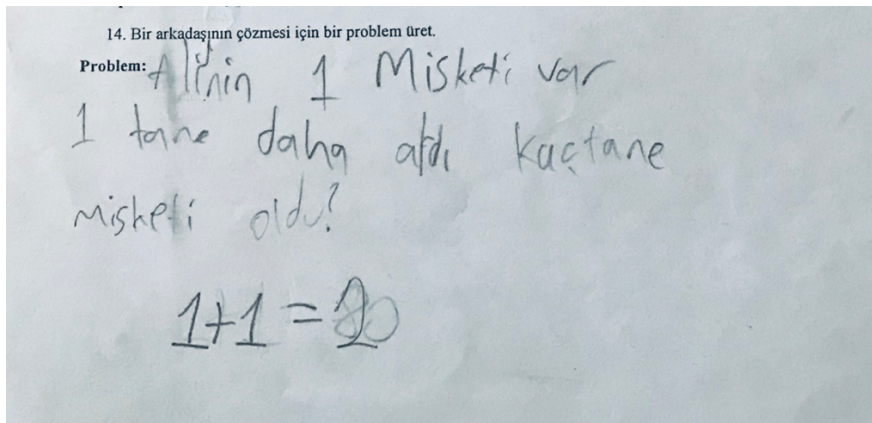 14. Bir arkadaşının çözmesi için bir problem üret.
Problem: Alinin 1 Misketi var
1 tane daha aldı kaçtane
misketi oldu?
1+1=2